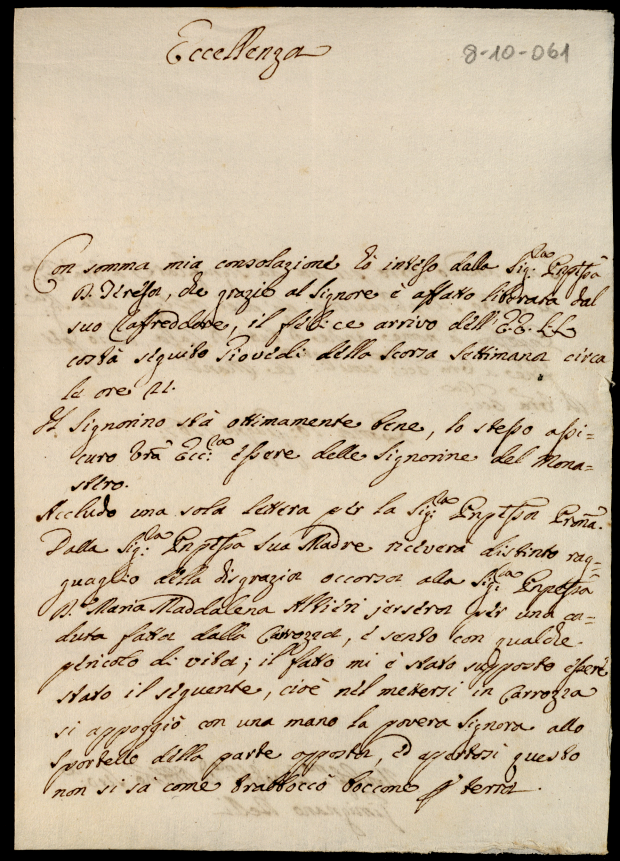 Eccellenza
8-10-061
Con somma mia consolazione hò inteso dalla Sig:ra Pnpessa
D. Teresa, che grazie al Signore è affatto liberata dal
suo Raffreddore, il felice arrivo dell'EE. LL.
costà seguito Giovedì della scorsa Settimana circa
le ore 21.
Il Signorino stà ottimamente bene, lo stesso assi-
curo Vrã Ecc:za essere delle Signorine del Mona-
stero.
Accludo una sola lettera per la Sig:ra Pnpessa Pronã.
Dalla Sig:ra Pnpessa sua Madre riceverà distinto rag-
guaglio della disgrazia occorsa alla Sig:ra Pnpessa
D. Maria Maddalena Altieri jersera per una ca-
duta fatta dalla Carrozza, e sento con qualche
pericolo di vita; il fatto mi è stato supposto essere
stato il seguente, cioè nel mettersi in Carrozza
si appoggiò con una mano la povera Signora allo
sportello della parte opposta, ed apertosi questo
non si sà come traboccò boccone p terra.